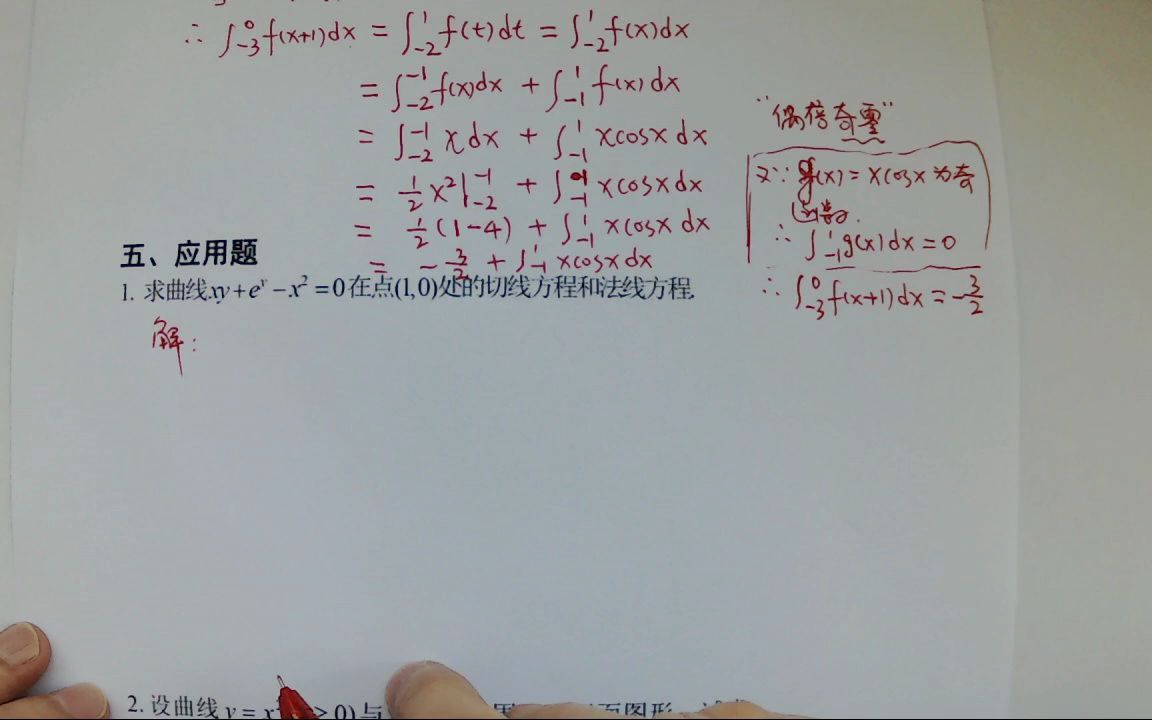 ∴ ∫₋₃⁰ f(x+1)dx = ∫₋₂¹ f(t)dt = ∫₋₂¹ f(x)dx
= ∫₋₂⁻¹ f(x)dx + ∫₋₁¹ f(x)dx
= ∫₋₂⁻¹ x dx + ∫₋₁¹ xcosx dx
= ½x²|₋₂⁻¹ + ∫₋₁¹ xcosxdx
= ½(1-4) + ∫₋₁¹ xcosx dx
= -3/2 + ∫₋₁¹ xcosxdx
"偶倍奇零"
又∵ g(x) = xcosx 为奇
函数.
∴ ∫₋₁¹ g(x)dx = 0
∴ ∫₋₃⁰ f(x+1)dx = -3/2
五、应用题
1. 求曲线xy+eʸ-x²=0在点(1,0)处的切线方程和法线方程.
解:
2. 设曲线 y = x > 0)与